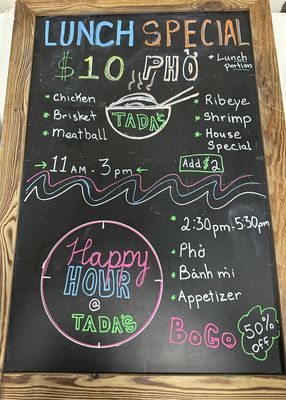 LUNCH SPECIAL
$10 PHỞ * Lunch portion
* Chicken
* Brisket
* Meatball
TADA'S
* Ribeye
* Shrimp
* House Special
11 AM - 3 PM
Add $2
Happy
HOUR
@
TADA'S
* 2:30pm - 5:30pm
* Phở
* Bánh mì
* Appetizer
BoGo
50% off